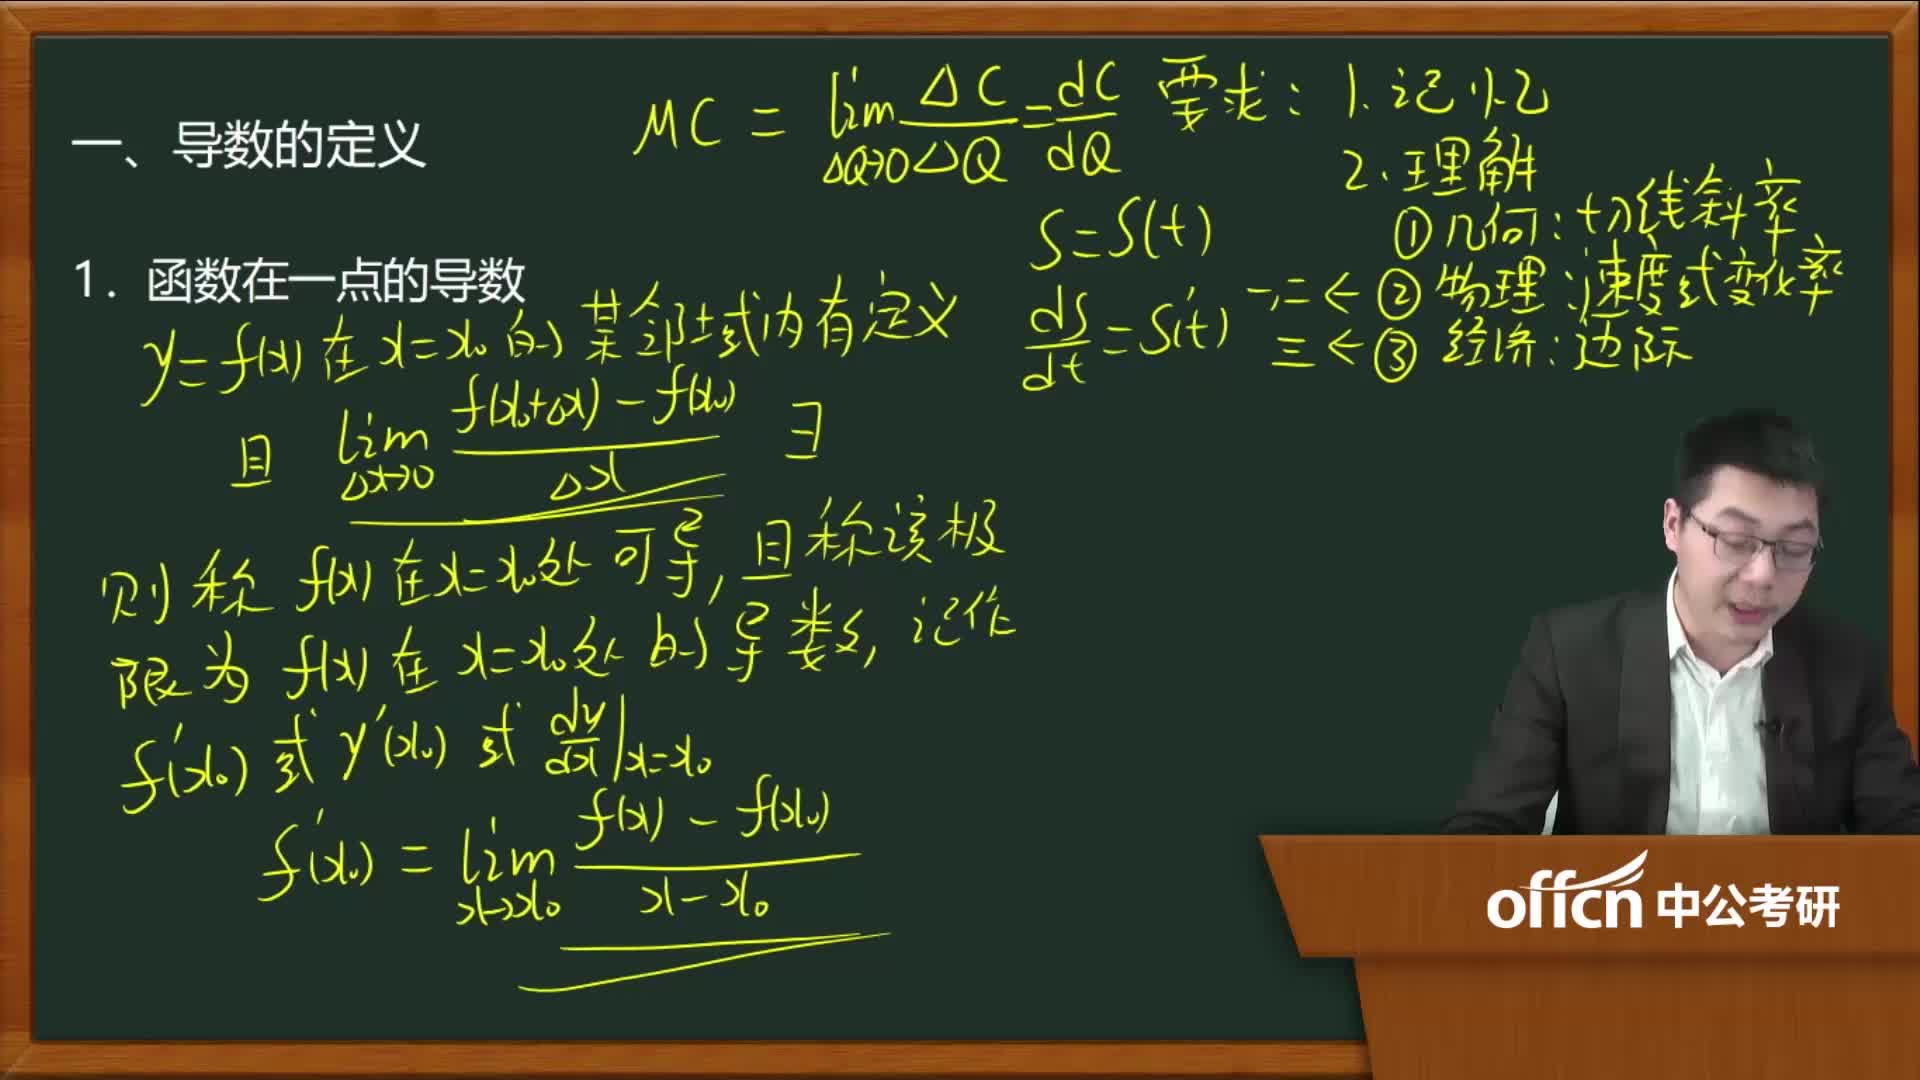 一、导数的定义
1. 函数在一点的导数
y=f(x)在x=x₀的某邻域内有定义
且 lim Δx→0 (f(x₀+Δx)-f(x₀))/Δx ∃
则称f(x)在x=x₀处可导,且称该极
限为f(x)在x=x₀处的导数,记作
f'(x₀)或y'(x₀)或dy/dx|x=x₀
f'(x₀)=lim x→x₀ (f(x)-f(x₀))/(x-x₀)
MC=lim ΔQ→0 ΔC/ΔQ=dC/dQ
S=S(t)
dS/dt=S'(t)
要求:1.记忆
2.理解
①几何:切线斜率
一,二←②物理:速度或变化率
三←③经济:边际
offcn中公考研